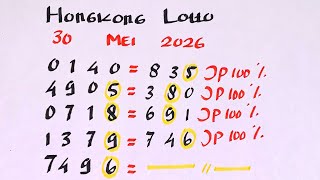 HONGKONG LOTTO
30 MEI 2026
0 1 4 0 = 8 3 5 JP 100%
4 9 0 5 = 3 8 0 JP 100%
0 7 1 8 = 6 9 1 JP 100%
1 3 7 9 = 7 4 6 JP 100%
7 4 9 6 = — // —